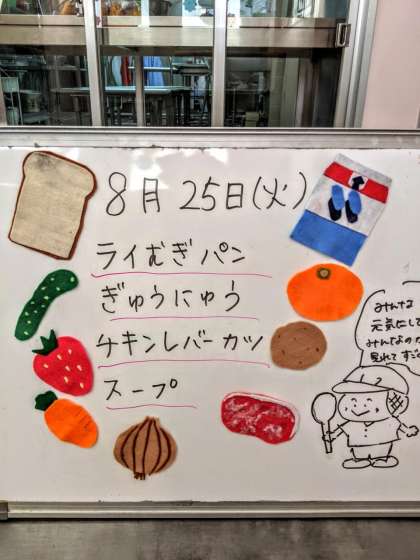 8月 25日(火)
ライむぎパン
ぎゅうにゅう
チキンレバーカツ
スープ
みんな
元気にして
みんなの
見れて